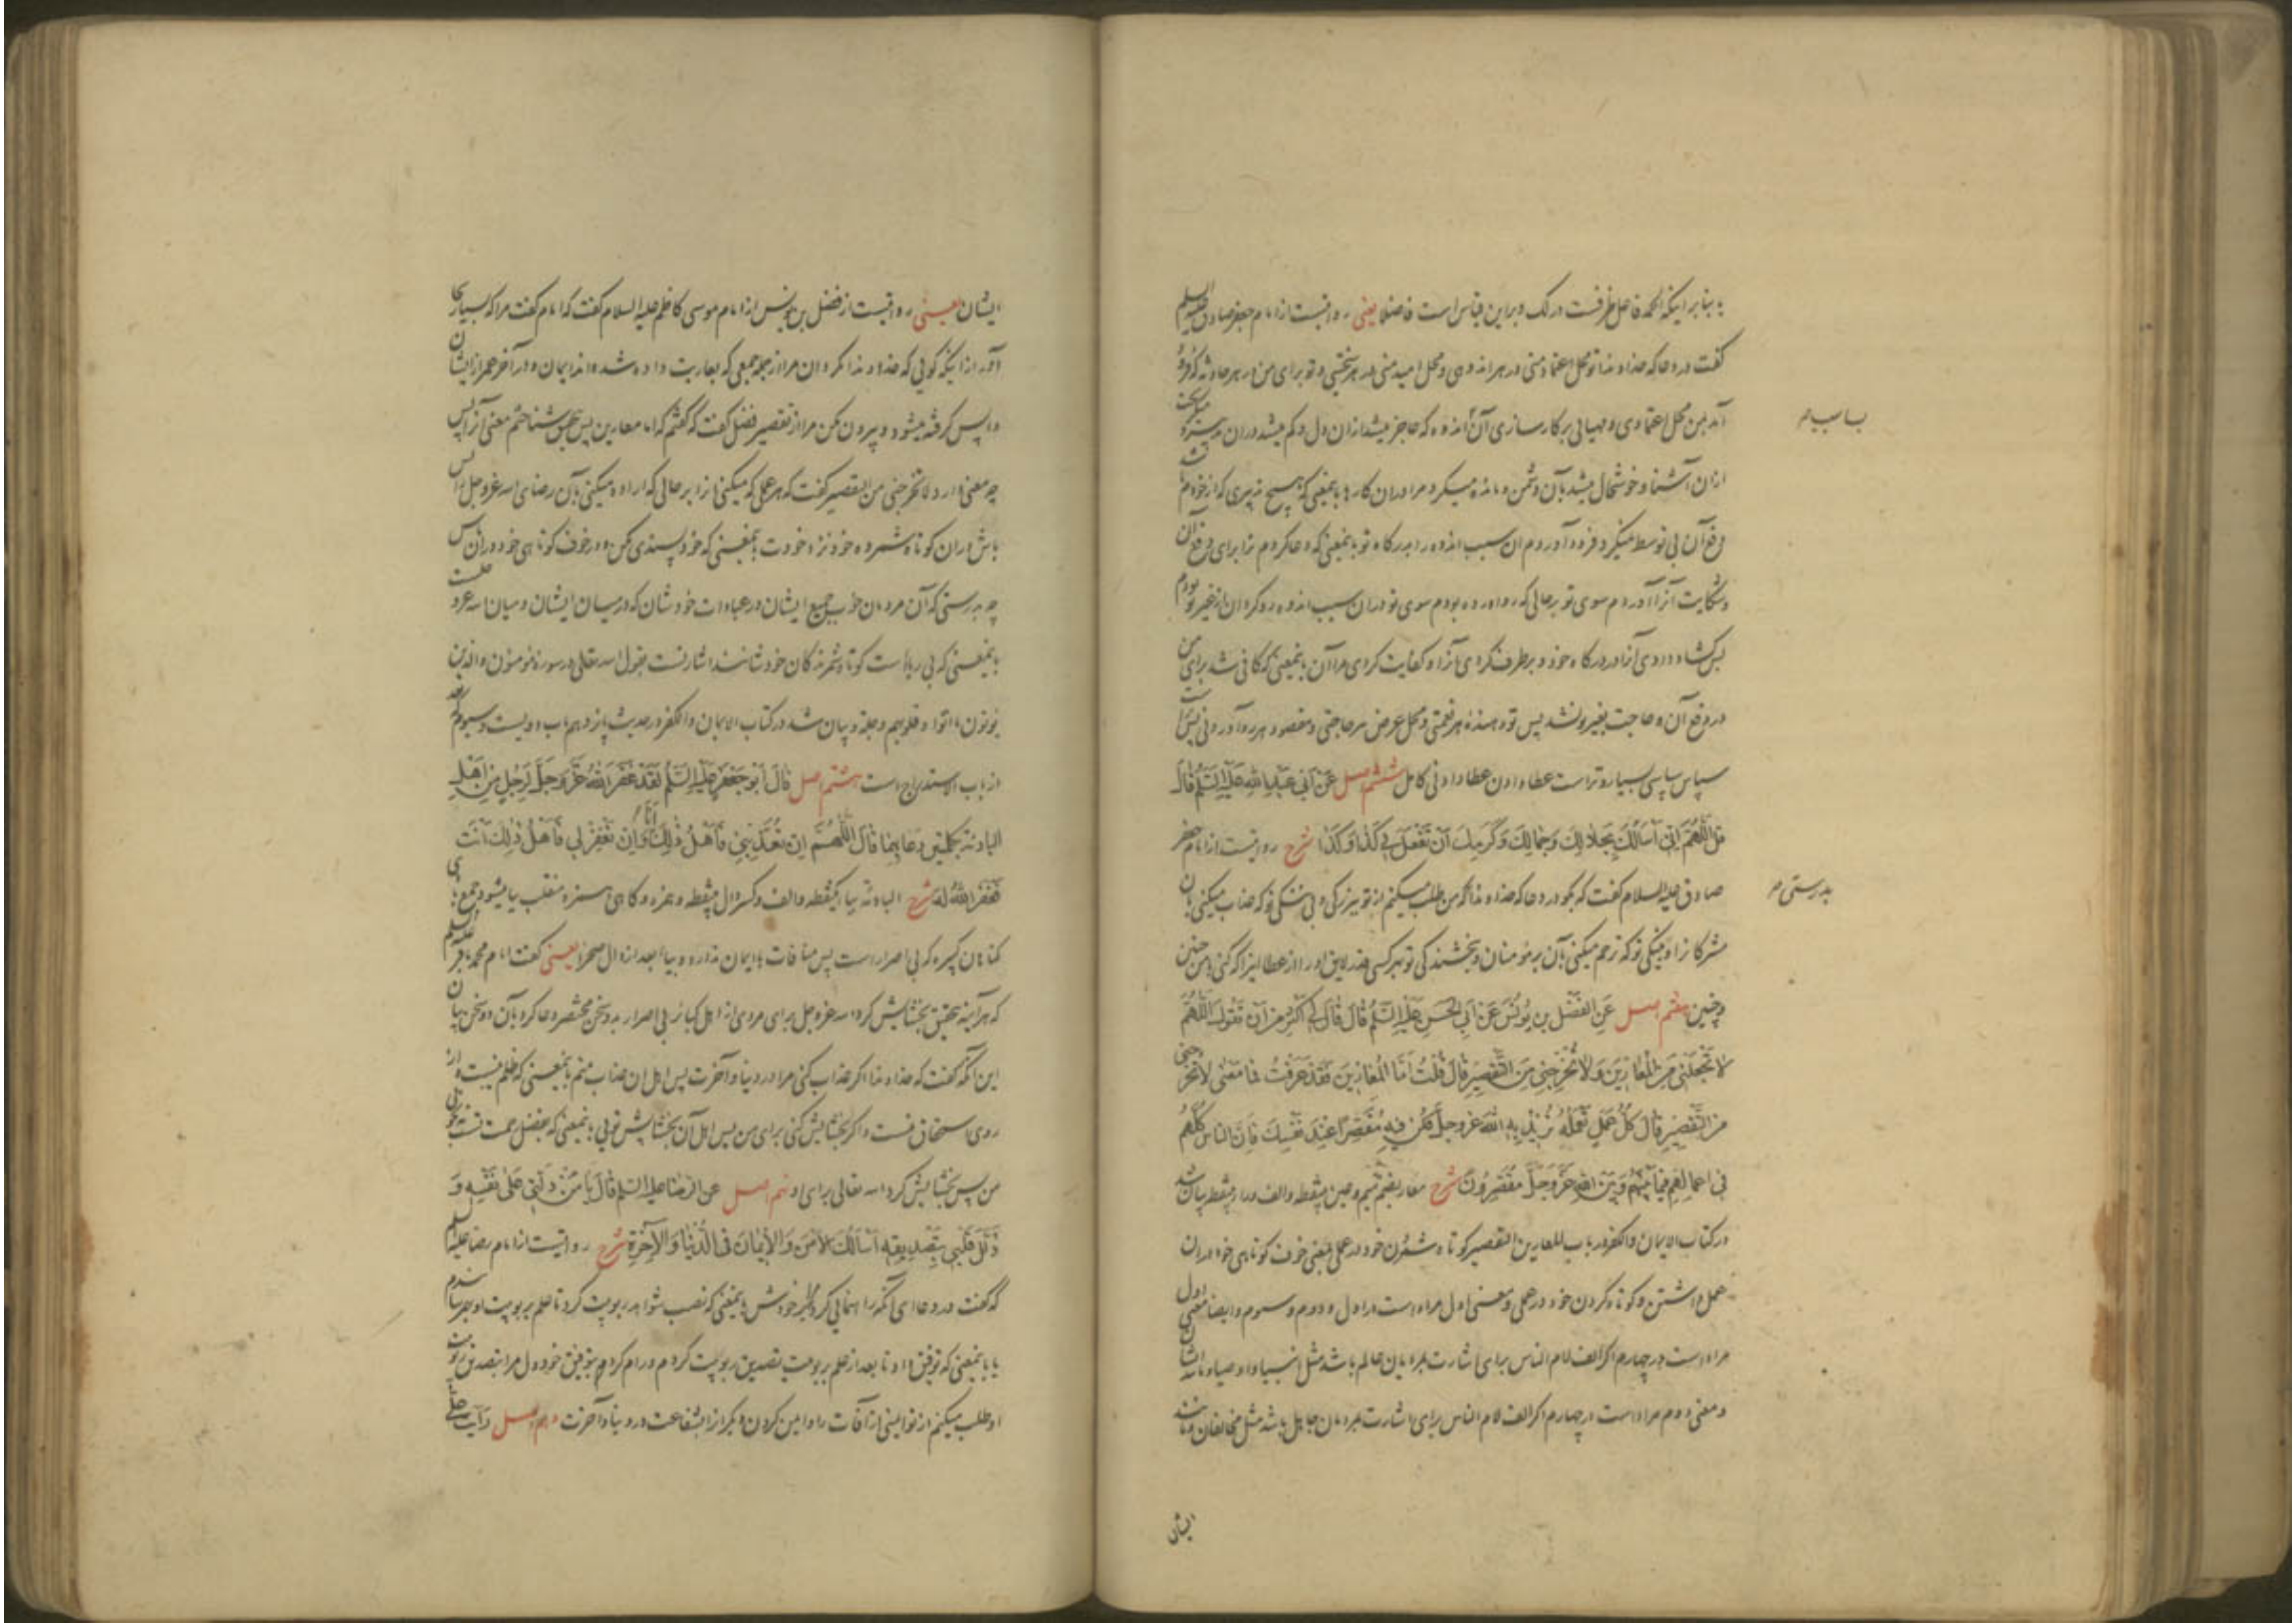 بنابر اینکه الحمد فاصل ظرفست در لک و براین قیاس است فاضلا یعنی روایتست از امام جعفر صادق علیه السلم
گفت در دعا که خداوندا تو محل اعتماد منی در هر اندوهی و محل امید منی در هر سختیی و تو برای من در هر حادثه که فرو
آمد بمن محل اعتمادی و مهیایی بر کارسازی آن اندوه که عاجز میشد از آن دل و کم میشد در آن
بسا سبب
از آن آشنا و خوشحال میشد بآن دشمن و مانده میکرد مرا در آن کارها بمعنی که هیچ تدبیری که از خودم
دفع آن بی توسط میکرد فرود آوردم آن سبب اندوه را بدرگاه تو بمعنی که دعا کردم ترا برای دفع آن
و شکایت آنرا آوردم سوی تو برحالی که رو آورده بودم سوی تو در آن سبب اندوه رو کردان از غیر تو بودم
پس گشاد دادی آنرا در درگاه خود و برطرف کردی آنرا و کفایت کردی مرا آن بمعنی که کافی شد برای من
در دفع آن و حاجت بغیر تو نشد پس تو دهنده هر نعمتی و محل عرض هر حاجتی و مقصود هر رو آوردنی پس تراست
سپاس سپاسی بسیار و تراست عطا دادن عطا دادنی کامل ششم اصل عَنْ اَبی عَبْدِاللهِ عَلَیْهِ السَّلَمُ قالَ
قُلِ اللّهُمَّ اِنّی اَسْأَلُكَ بِجَلالِكَ وَجَمالِكَ وَكَرَمِكَ اَنْ تَفْعَلَ بی كَذا وَكَذا شرح روایتست از امام جعفر
صادق علیه السلام گفت که بگو در دعا که خداوندا من طلب میکنم از تو ببزرکی و بی ننگی تو که عذاب میکنی بآن
بدرستی
مشرکان را و نیکی تو که ترحم میکنی بآن بر مؤمنان و بخشندکی تو بهر کسی قدر لایق او را از عطا اینرا که کنی بمن چنین
و چنین هفتم اصل عَنِ الْفَضْلِ بْنِ یُونُسَ عَنْ اَبی الْحَسَنِ عَلَیْهِ السَّلَمُ قالَ قالَ لی اَكْثِرْ مِنْ اَنْ تَقُولَ اَللّهُمَّ
لا تَجْعَلْنی مِنَ الْمُعارینَ وَلا تُخْرِجْنی مِنَ التَّقْصیرِ قالَ قُلْتُ اَمَّا الْمُعارینَ فَقَدْ عَرَفْتُ فَما مَعْنی لا تُخْرِجْنی
مِنَ التَّقْصیرِ قالَ كُلُّ عَمَلٍ تَعْمَلُهُ تُریدُ بِهِ اللهَ عَزَّوَجَلَّ فَكُنْ فیهِ مُقَصِّراً عِنْدَ نَفْسِكَ فَاِنَّ النّاسَ كُلَّهُمْ
فی اَعْمالِهِمْ فیما بَیْنَهُمْ وَبَیْنَ اللهِ عَزَّوَجَلَّ مُقَصِّرُونَ شرح معار بضم میم و عین بینقطه و الف و راء بینقطه بیان شد
در کتاب الایمان و الکفر در باب المعارین التقصیر کوتاه شمردن خود در عملی یعنی خوف کوتاهی خود در آن
عمل داشتن و کوتاه کردن خود در عملی و معنی اول مراد است در اول و دوم و سوم و ایضا معنی اول
مراد است در چهارم اکر الف لام الناس برای اشارت بمردمان عالم باشد مثل انبیا و اوصیا
و معنی دوم مراد است در چهارم اکر الف لام الناس برای اشارت بمردمان جاهل باشد مثل مخالفان
ایشان
ایشان یعنی روایتست از فضل بن یونس از امام موسی کاظم علیه السلام گفت که امام گفت مرا که بسیار بجا
آور از اینکه گویی که خداوندا مکردان مرا از جمله جمعی که بعاریت داده شده اند ایمان و در آخر عمر از ایشان
واپس گرفته میشود و بیرون مکن مرا از تقصیر فضل گفت که گفتم که اما معارین پس بتحقیق شناختم معنی آنرا پس
چه معنی دارد لا تخرجنی من التقصیر گفت که هر عملی که میکنی آنرا برحالی که اراده میکنی بآن رضای الله عزوجل را پس
باش در آن کوتاه شمرده خود نزد خودت بمعنی که خود پسندی مکن و در خوف کوتاهی خود در آن باش
چه بدرستی که آن مردمان خوب جمیع ایشان در عبادات خودشان که در میان ایشان و میان الله عزوجل است
بمعنی که بی ریاست کوتاه شمرندکان خودشانند اشارتست بقول الله تعالی در سوره مؤمنون والذین
یؤتون ما اتوا و قلوبهم وجلة و بیان شد در کتاب الایمان و الکفر در حدیث پانزدهم باب دویست و سیوم که بعد
از باب الاستدراج است هشتم اصل قالَ اَبُو جَعْفَرٍ عَلَیْهِ السَّلَمُ لَقَدْ غَفَرَ اللهُ عَزَّوَجَلَّ لِرَجُلٍ مِنْ اَهْلِ
الْبادِیَةِ بِكَلِمَتَیْنِ دَعا بِهِما قالَ اَللّهُمَّ اِنْ تُعَذِّبْنی فَاَهْلُ ذلِكَ اَنَا وَاِنْ تَغْفِرْ لی فَاَهْلُ ذلِكَ اَنْتَ
فَغَفَرَ اللهُ لَهُ شرح البادئة بباء یکنقطه و الف و کسر دال بینقطه و همزه و کاهی همزه منقلب بیا میشود
کناهان کبیره که بی اصرار است پس منافات با ایمان ندارد و بیا بعد از دال صحرا یعنی گفت امام محمد باقر علیه السلم
که هرآینه بتحقیق بخشایش کرد الله عزوجل برای مردی از اهل کبائر بی اصرار بدو سخن مختصر دعا کرد بآن دو سخن بیان
این آنکه گفت که خداوندا اکر عذاب کنی مرا در دنیا و آخرت پس اهل آن عذاب منم بمعنی که ظلم نیست و از
روی استحقاق منست و اکر بخشایش کنی برای من پس اهل آن بخشایش تویی بمعنی که بفضل تست
من پس بخشایش کرد الله تعالی برای او نهم اصل عن الرضا علیه السلم قالَ یا مَنْ دَلَّنی عَلی نَفْسِهِ وَ
ذَلَّلَ قَلْبی بِتَصْدیقِهِ اَسْأَلُكَ الْاَمْنَ وَالْایمانَ فی الدُّنْیا وَالْآخِرَةِ شرح روایتست از امام رضا علیه السلم
که گفت در دعا ای آنکه راهنمایی کرد مرا بر خودش بمعنی که نصب شواهد ربوبیت کرد تا علم بربوبیت او بهم رساندم
یا بمعنی که توفیق داد تا بعد از علم بربوبیت تصدیق ربوبیت کردم و رام کرد بتوفیق خود دل مرا بتصدیق
او طلب میکنم از تو ایمنی از آفات را و ایمن کردن دیکران از شفاعت در دنیا و آخرت دهم اصل رَاَیْتُ عَلِیَّ